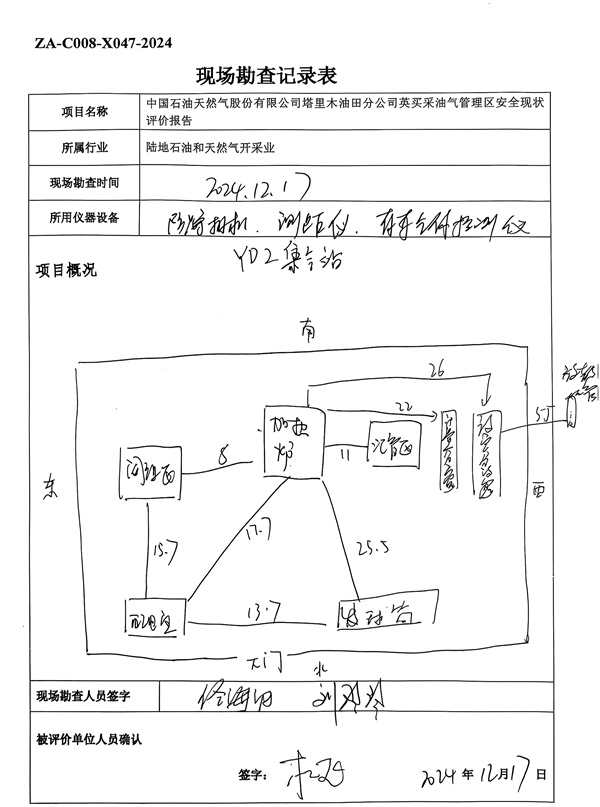 ZA-C008-X047-2024
现场勘查记录表
项目名称
中国石油天然气股份有限公司塔里木油田分公司英买采油气管理区安全现状
评价报告
所属行业
陆地石油和天然气开采业
现场勘查时间
2024.12.17
所用仪器设备
防爆相机、测距仪、有毒气体检测仪
项目概况
YD2集气站
南
26
22
55
加热
炉
汇管区
11
8
阀组区
计量分离器
东
西
15.7
17.7
25.5
配电室
13.7
发球筒
大门
北
现场勘查人员签字
被评价单位人员确认
签字:
2024年12月17日